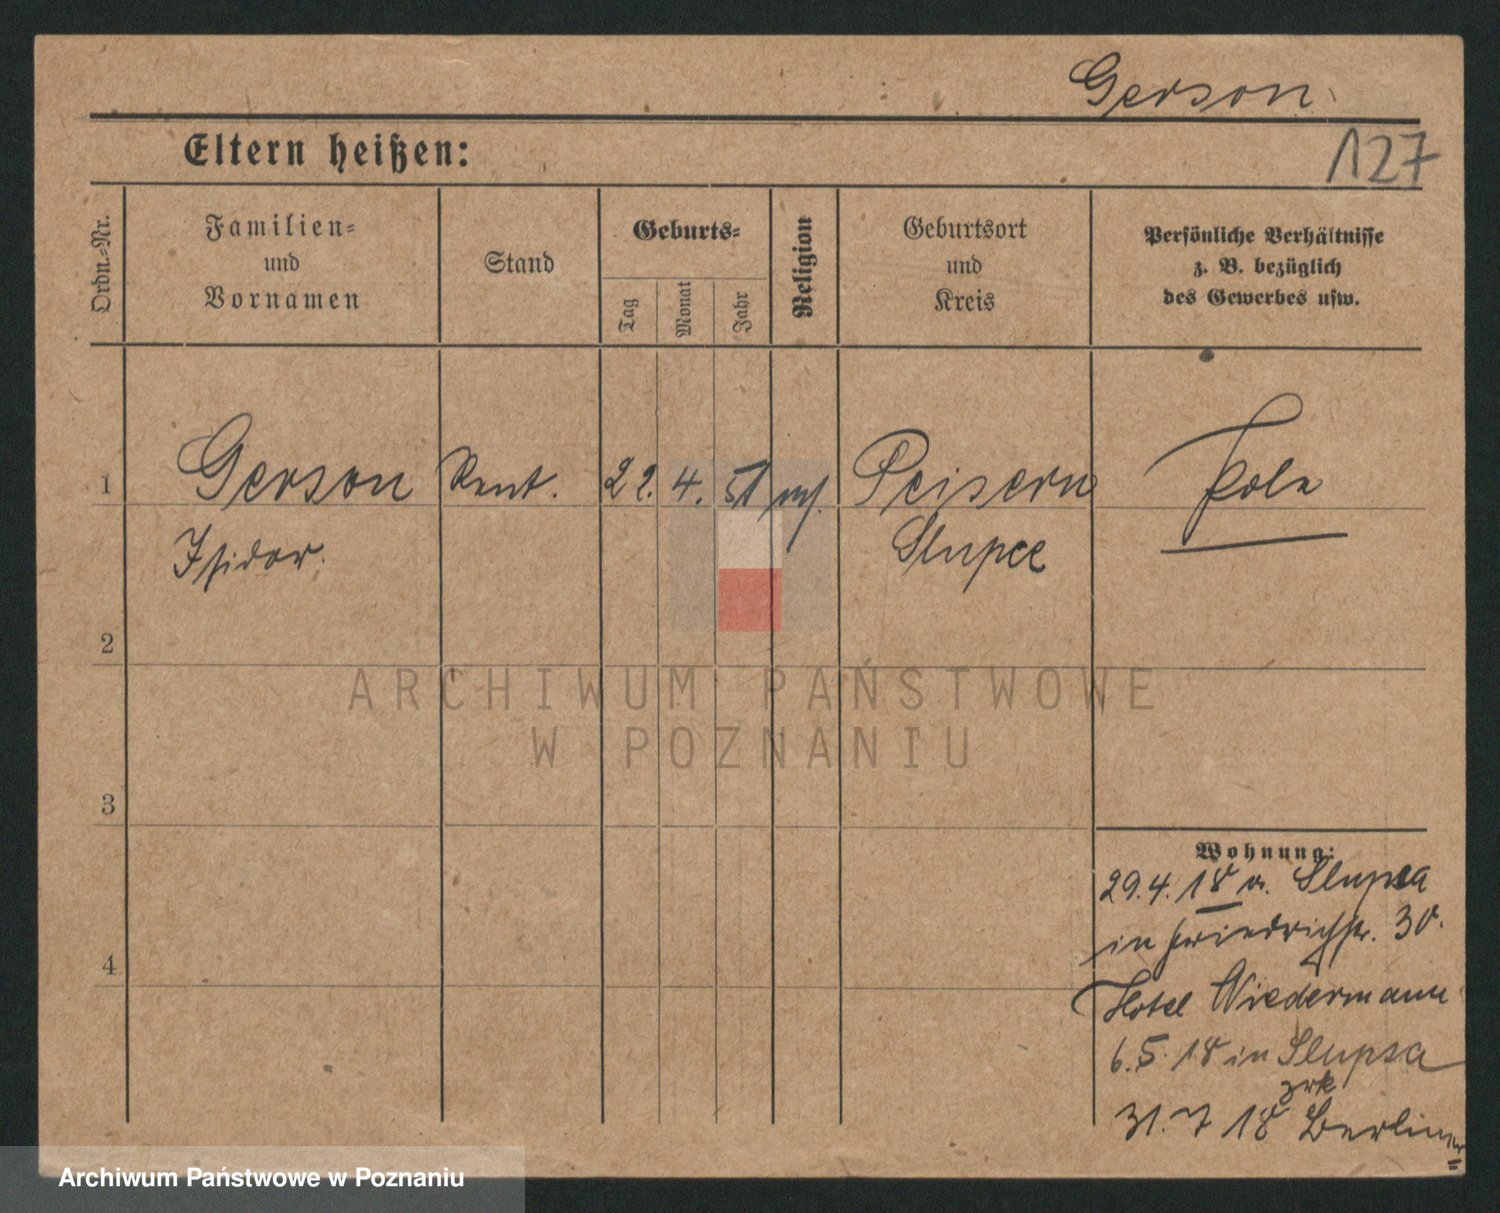 Gerson
Eltern heißen:
127
Ordn.-Nr.
Familien-
und
Vornamen
Stand
Geburts-
Tag
Monat
Jahr
Religion
Geburtsort
und
Kreis
Persönliche Verhältnisse
z. B. bezüglich
des Gewerbes usw.
1
Gerson
Rent.
22.
4.
51
Peisern
Pole
Isidor.
Slupce
2
ARCHIWUM PAŃSTWOWE
W POZNANIU
3
Wohnung:
29.4.18 v. Slupca
in Friedrichstr. 30.
4
Hotel Wiedermann
6.5.18 in Slupsa
zrk
31.7 18 Berliner
Archiwum Państwowe w Poznaniu